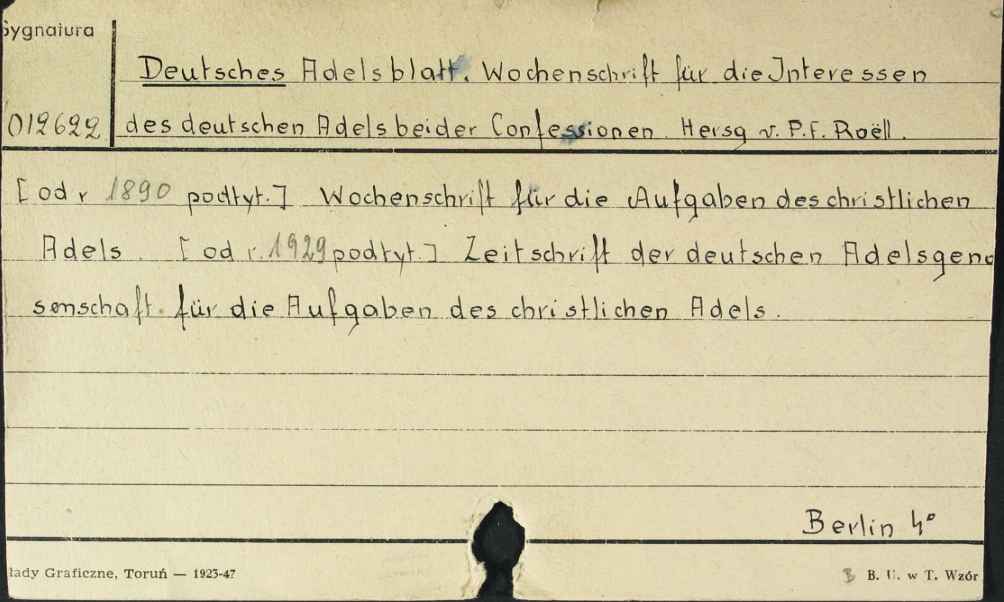 Sygnatura
Deutsches Adelsblatt. Wochenschrift für die Interessen
012622 des deutschen Adels beider Confessionen. Hersg v. P.F. Roëll.
[od r 1890 podtyt.] Wochenschrift für die Aufgaben des christlichen
Adels. [od r. 1929 podtyt.] Zeitschrift der deutschen Adelsgeno
senschaft. für die Aufgaben des christlichen Adels.
Berlin 4°
łady Graficzne, Toruń — 1923-47 B. U. w T. Wzór